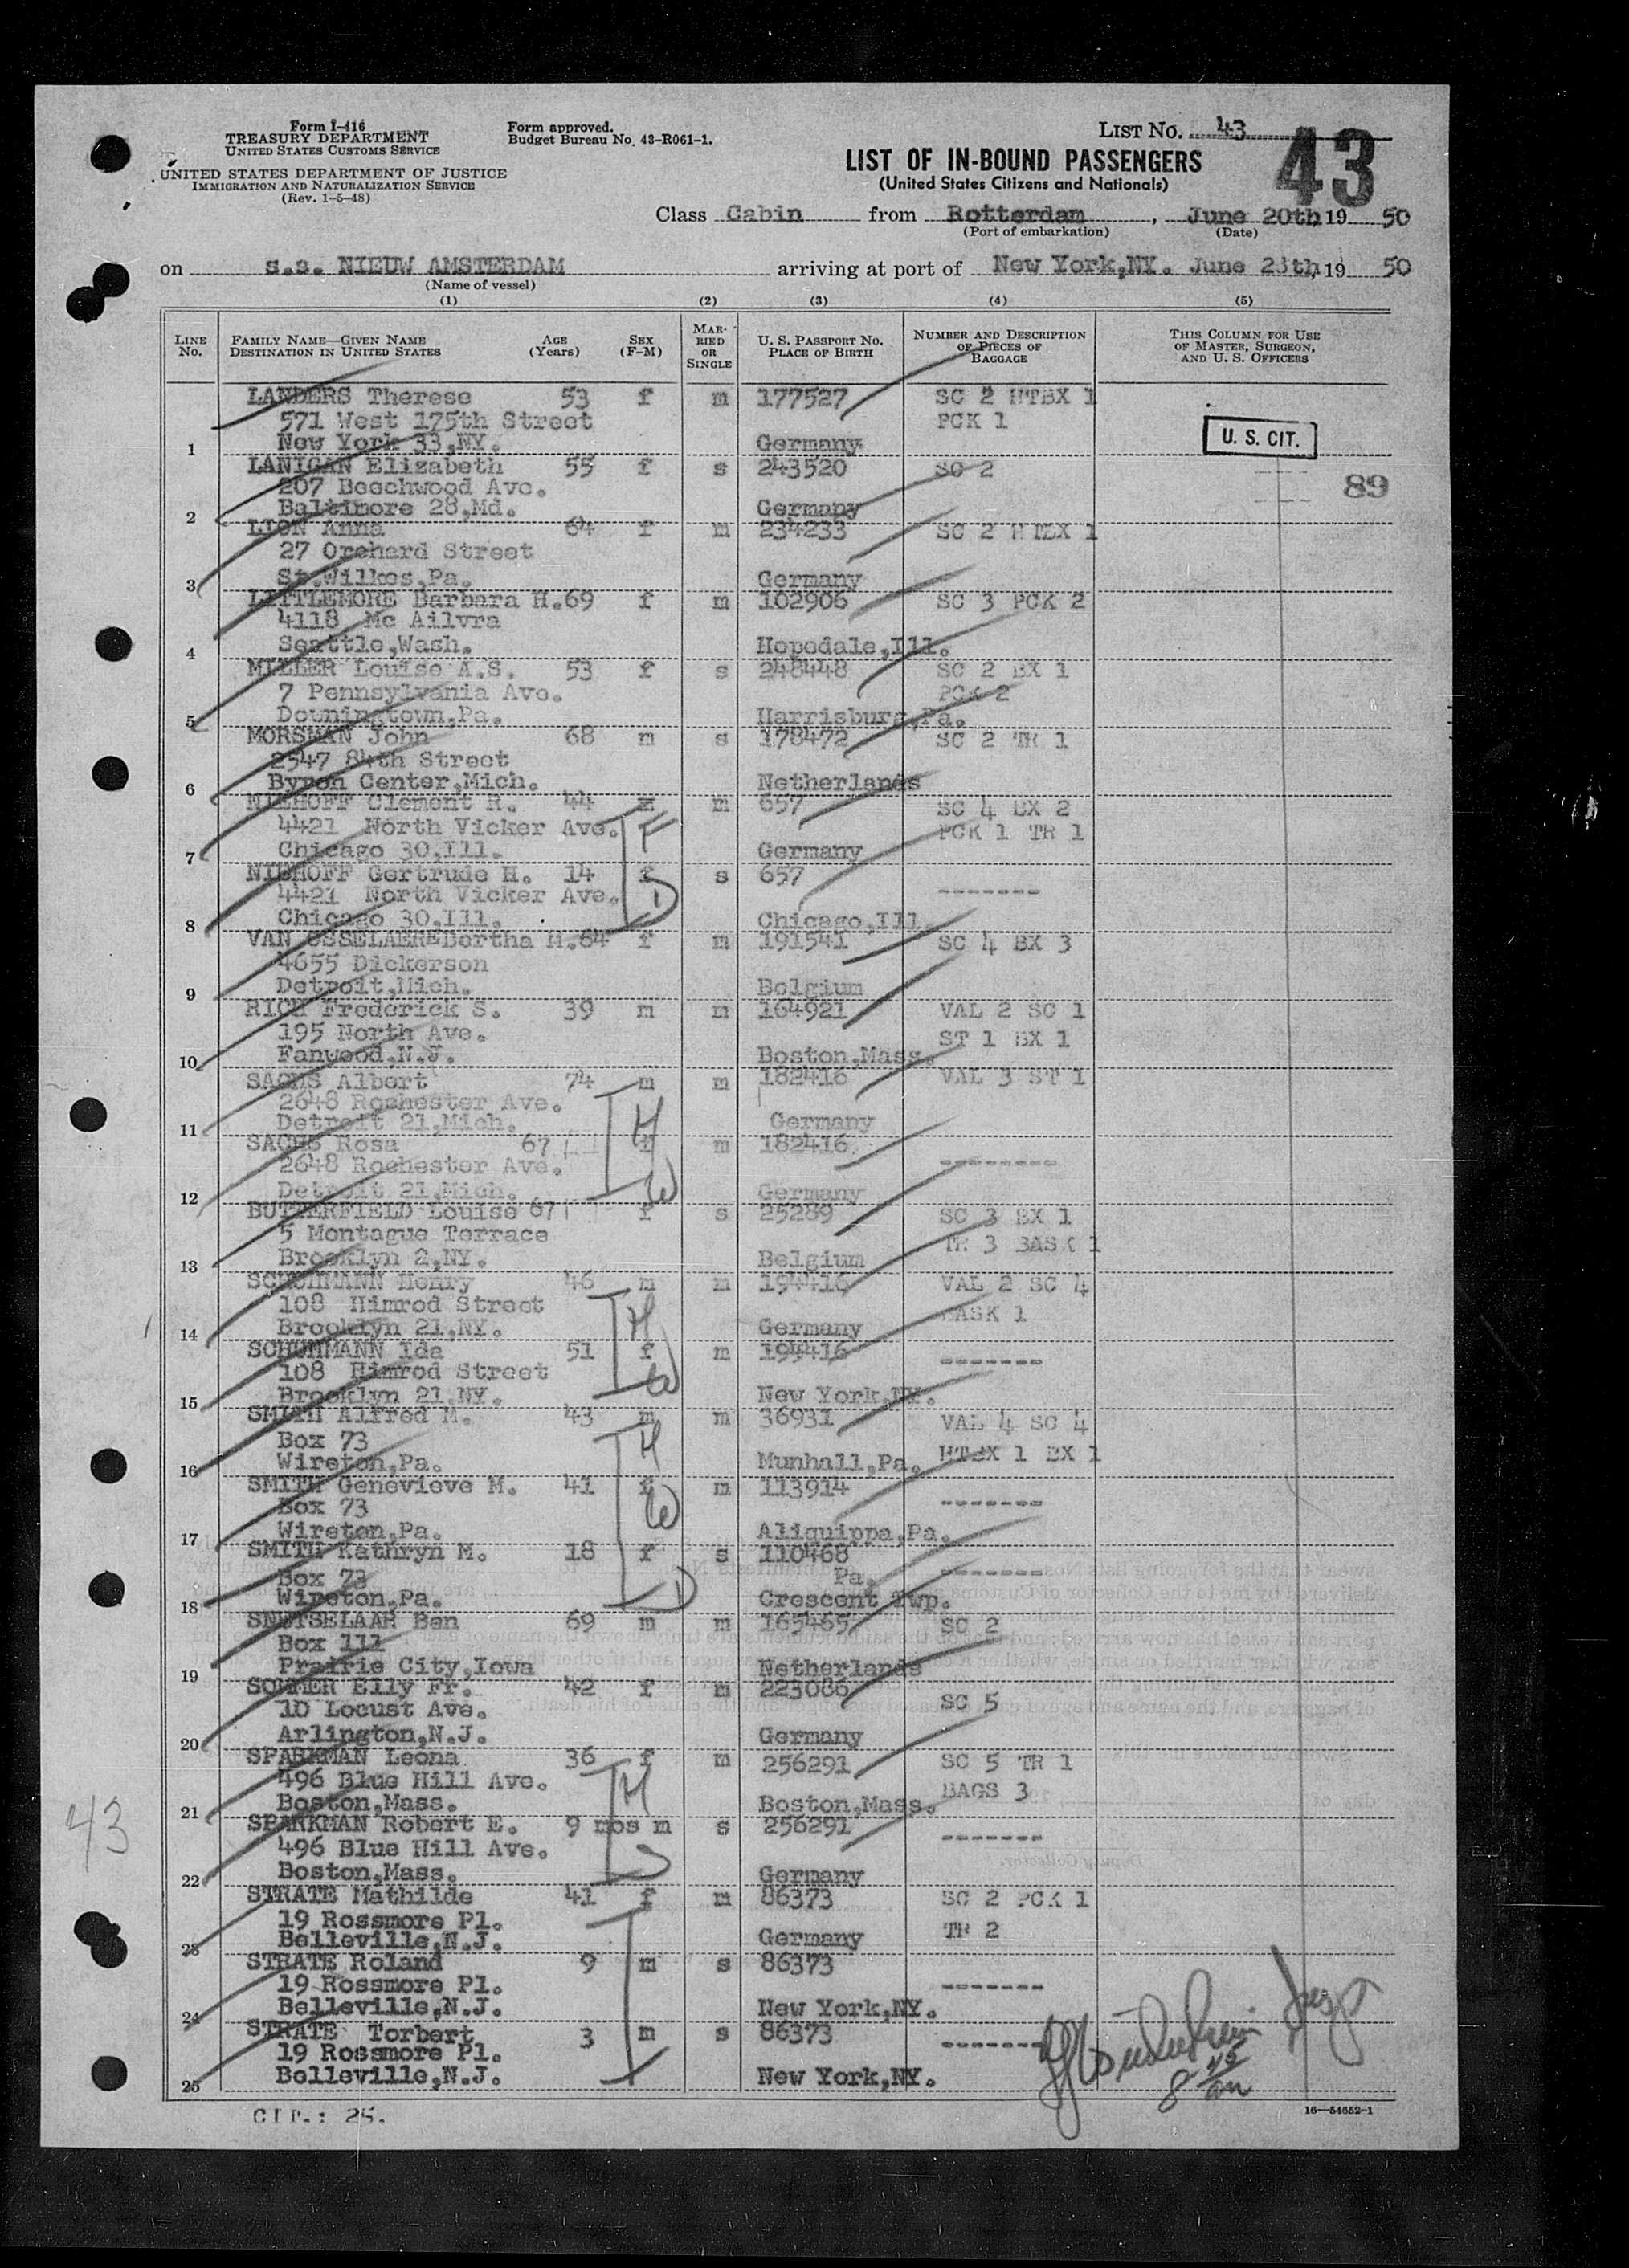 Form I-416
TREASURY DEPARTMENT
UNITED STATES CUSTOMS SERVICE
UNITED STATES DEPARTMENT OF JUSTICE
IMMIGRATION AND NATURALIZATION SERVICE
(Rev. 1-5-48)
Form approved.
Budget Bureau No. 43-R061-1.
LIST NO. 43
43
LIST OF IN-BOUND PASSENGERS
(United States Citizens and Nationals)
Class Cabin from Rotterdam, June 20th, 19 50
(Port of embarkation) (Date)
on s.s. NIEUW AMSTERDAM arriving at port of New York,NY. June 28th, 19 50
(Name of vessel)
(1) (2) (3) (4) (5)
LINE NO. FAMILY NAME—GIVEN NAME DESTINATION IN UNITED STATES AGE (Years) SEX (F-M) MARRIED OR SINGLE U. S. PASSPORT NO. PLACE OF BIRTH NUMBER AND DESCRIPTION OF PIECES OF BAGGAGE THIS COLUMN FOR USE OF MASTER, SURGEON, AND U. S. OFFICERS
LANDERS Therese 53 f m 177527 SC 2 HTBX 1
571 West 175th Street PCK 1
1 New York 33,NY. Germany U. S. CIT.
LANIGAN Elizabeth 55 f s 243520 SC 2
207 Beechwood Ave. 89
2 Baltimore 28,Md. Germany
LION Anna 64 f m 234233 SC 2 HTBX 1
27 Orchard Street
3 St.Wilkes,Pa. Germany
LITTLEMORE Barbara H. 69 f m 102906 SC 3 PCK 2
4118 Mc Ailvra
4 Seattle,Wash. Hopedale,Ill.
MILLER Louise A.S. 53 f s 248448 SC 2 BX 1
7 Pennsylvania Ave. PCK 2
5 Downingtown,Pa. Harrisburg,Pa.
MORSMAN John 68 m s 178472 SC 2 TR 1
2547 84th Street
6 Byron Center,Mich. Netherlands
NIEHOFF Clement R. 44 m m 657 SC 4 BX 2
4421 North Vicker Ave. F PCK 1 TR 1
7 Chicago 30,Ill. Germany
NIEHOFF Gertrude H. 14 f s 657 -------
4421 North Vicker Ave. D
8 Chicago 30,Ill. Chicago,Ill.
VAN OSSELAERE Bertha M. 64 f m 191541 SC 4 BX 3
4655 Dickerson
9 Detroit,Mich. Belgium
RICH Frederick S. 39 m m 164921 VAL 2 SC 1
195 North Ave. ST 1 BX 1
10 Fanwood,N.J. Boston,Mass.
SACHS Albert 74 m m 182416 VAL 3 ST 1
2648 Rochester Ave. H
11 Detroit 21,Mich. Germany
SACHS Rosa 67 f m 182416 --------
2648 Rochester Ave. W
12 Detroit 21,Mich. Germany
BUTTERFIELD Louise 67 f s 25289 SC 3 BX 1
5 Montague Terrace TR 3 BASK 1
13 Brooklyn 2,NY. Belgium
SCHUHMANN Henry 46 m m 194416 VAL 2 SC 4
108 Himrod Street H BASK 1
14 Brooklyn 21,NY. Germany
SCHUHMANN Ida 51 f m 194416 -------
108 Himrod Street W
15 Brooklyn 21,NY. New York,NY.
SMITH Alfred M. 43 m m 36931 VAL 4 SC 4
Box 73 H HTBX 1 BX 1
16 Wireton,Pa. Munhall,Pa.
SMITH Genevieve M. 41 f m 113914 -------
Box 73 W
17 Wireton,Pa. Aliquippa,Pa.
SMITH Kathryn M. 18 f s 110468 -------
Box 73 D Pa.
18 Wireton,Pa. Crescent Twp.
SNETSELAAR Ben 69 m m 165465 SC 2
Box 111
19 Prairie City,Iowa Netherlands
SOMMER Elly Fr. 42 f m 223086 SC 5
10 Locust Ave.
20 Arlington,N.J. Germany
SPARKMAN Leona 36 f m 256291 SC 5 TR 1
496 Blue Hill Ave. BAGS 3
21 Boston,Mass. Boston,Mass.
SPARKMAN Robert E. 9 mos m s 256291 -------
496 Blue Hill Ave.
22 Boston,Mass. Germany
43
STRATE Mathilde 41 f m 86373 SC 2 PCK 1
19 Rossmore Pl. TR 2
23 Belleville,N.J. Germany
STRATE Roland 9 m s 86373 -------
19 Rossmore Pl.
24 Belleville,N.J. New York,NY.
STRATE Torbert 3 m s 86373 -------
19 Rossmore Pl.
25 Belleville,N.J. New York,NY.
CIT.: 25.
16—54652-1